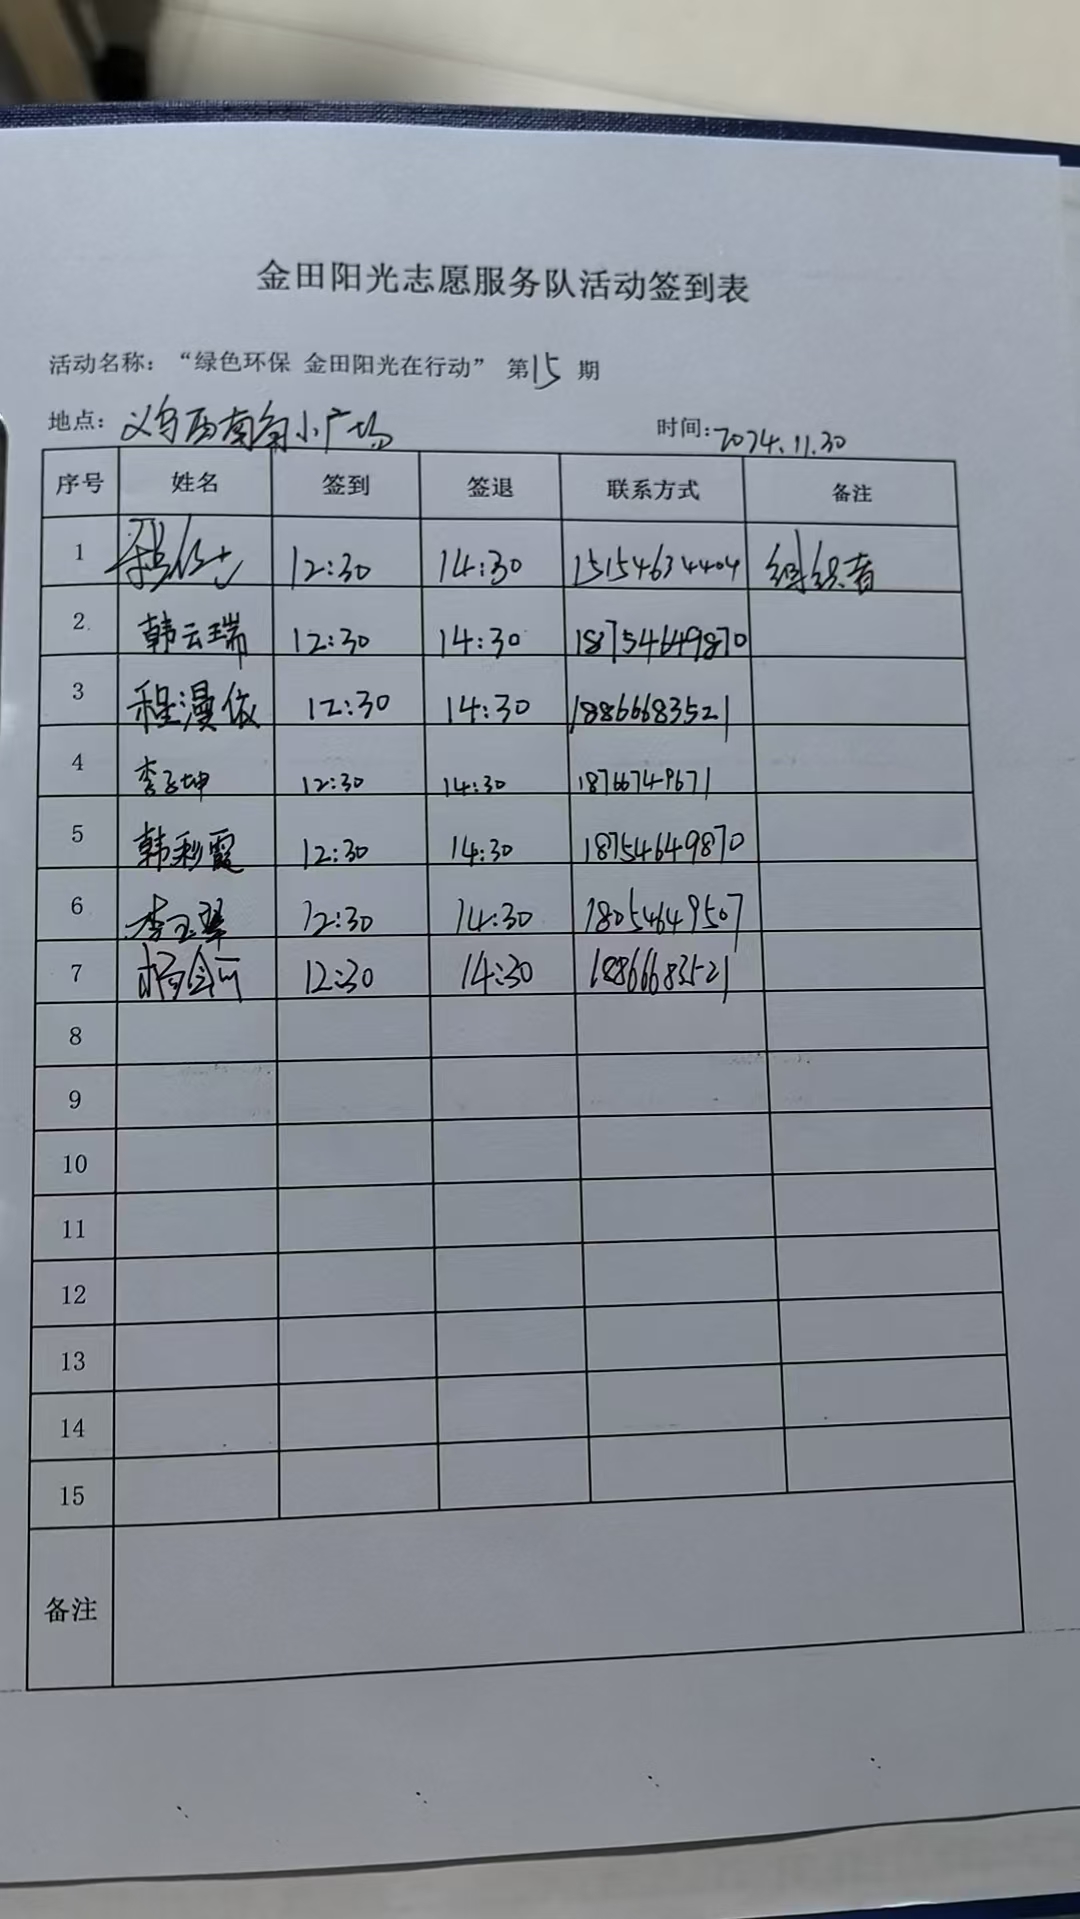 金田阳光志愿服务队活动签到表
活动名称：“绿色环保 金田阳光在行动” 第15期
地点：义乌西南角小广场 时间：2024.11.30
序号 姓名 签到 签退 联系方式 备注
1 12:30 14:30 15154634404 组织者
2 韩云瑞 12:30 14:30 18754649870
3 程漫依 12:30 14:30 18866683521
4 李子坤 12:30 14:30 18766749671
5 韩彩霞 12:30 14:30 18754649870
6 李玉翠 12:30 14:30 18054649507
7 杨会 12:30 14:30 18866683521
8
9
10
11
12
13
14
15
备注